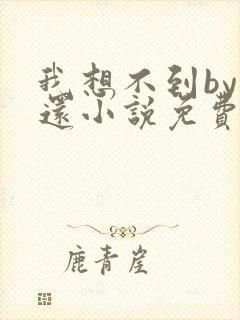 我想不到by
還小說免費
鹿青崖